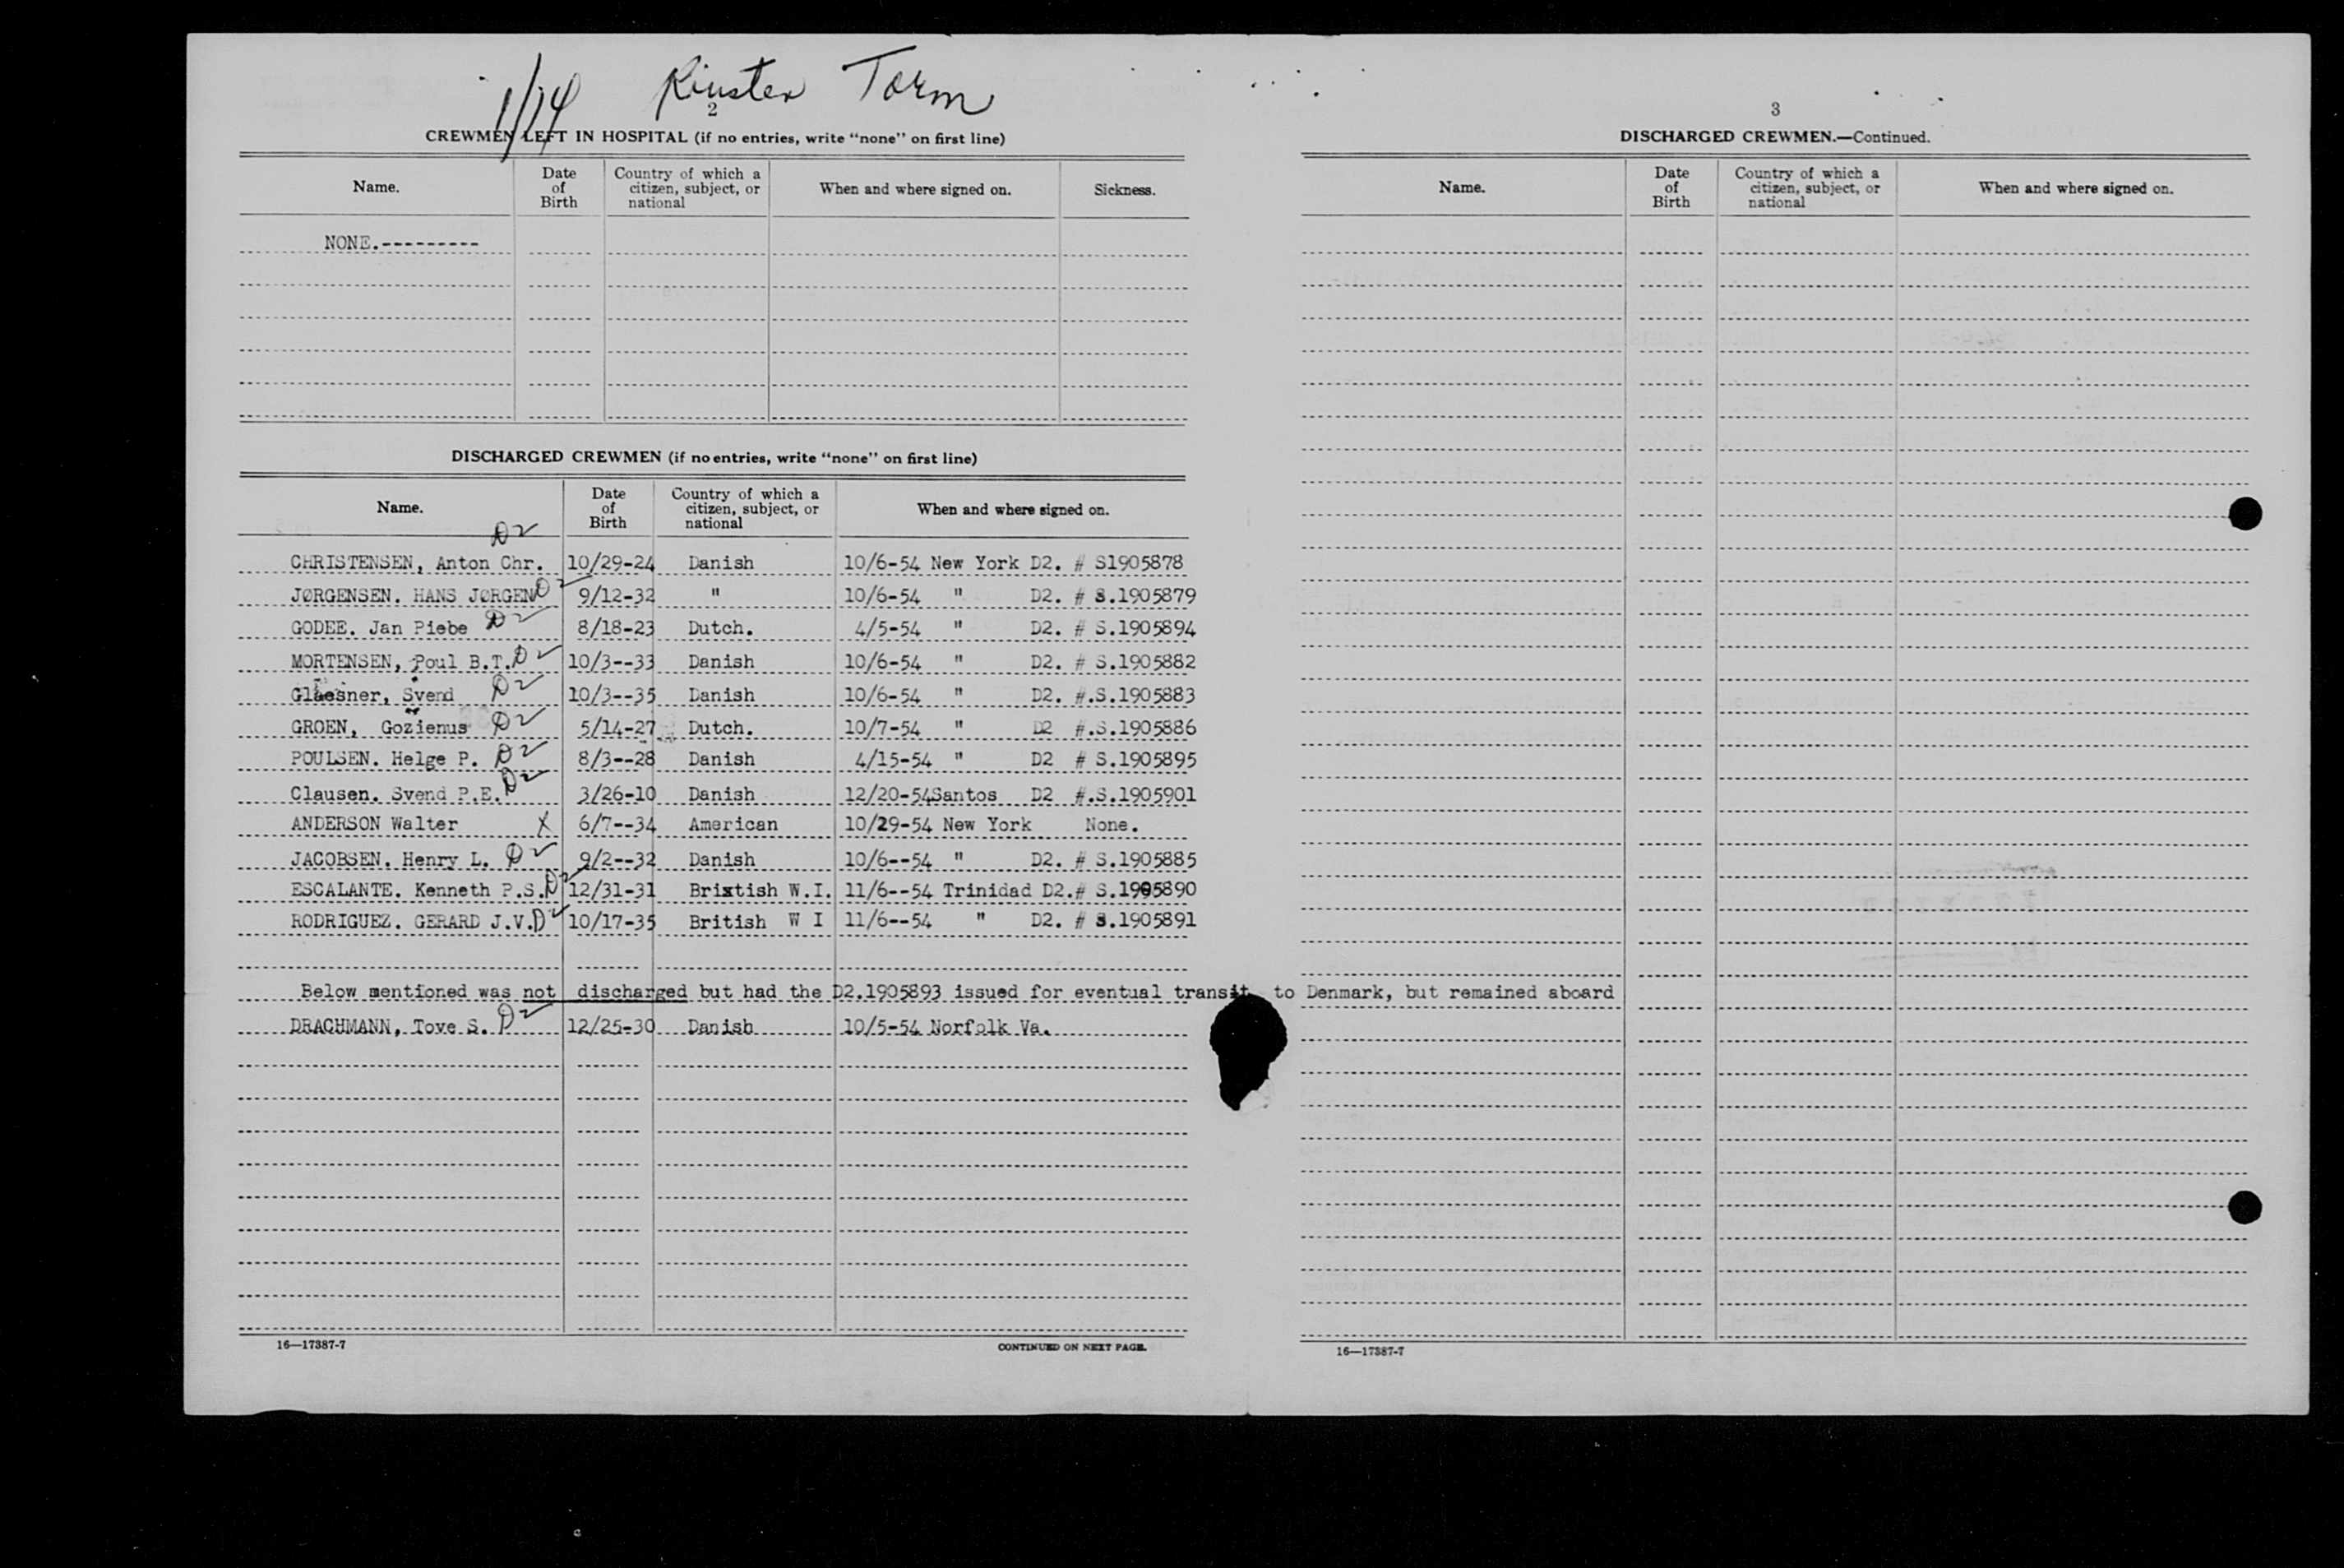 1/14 Kirsten Torm
2
CREWMEN LEFT IN HOSPITAL (if no entries, write "none" on first line)
Name. Date of Birth Country of which a citizen, subject, or national When and where signed on. Sickness.
NONE.---------
DISCHARGED CREWMEN (if no entries, write "none" on first line)
Name. Date of Birth Country of which a citizen, subject, or national When and where signed on.
D2
CHRISTENSEN, Anton Chr. 10/29-24 Danish 10/6-54 New York D2. # S1905878
JØRGENSEN. HANS JØRGEN D2 9/12-32 " 10/6-54 " D2. # S.1905879
GODEE. Jan Piebe D2 8/18-23 Dutch. 4/5-54 " D2. # S.1905894
MORTENSEN, Poul B.T. D2 10/3--33 Danish 10/6-54 " D2. # S.1905882
Glaesner, Svend D2 10/3--35 Danish 10/6-54 " D2. #.S.1905883
GROEN, Gozienus D2 5/14-27 Dutch. 10/7-54 " D2 #.S.1905886
POULSEN. Helge P. D2 8/3--28 Danish 4/15-54 " D2 # S.1905895
Clausen. Svend P.E. D2 3/26-10 Danish 12/20-54Santos D2 #.S.1905901
ANDERSON Walter X 6/7--34 American 10/29-54 New York None.
JACOBSEN. Henry L. D2 9/2--32 Danish 10/6--54 " D2. # S.1905885
ESCALANTE. Kenneth P.S. D2 12/31-31 Brixtish W.I. 11/6--54 Trinidad D2.# S.1905890
RODRIGUEZ. GERARD J.V. D2 10/17-35 British W I 11/6--54 " D2. # S.1905891
Below mentioned was not discharged but had the D2.1905893 issued for eventual transit to Denmark, but remained aboard
DRACHMANN, Tove S. D2 12/25-30 Danish 10/5-54 Norfolk Va.
16—17387-7 CONTINUED ON NEXT PAGE.
3
DISCHARGED CREWMEN.—Continued.
Name. Date of Birth Country of which a citizen, subject, or national When and where signed on.
16—17387-7